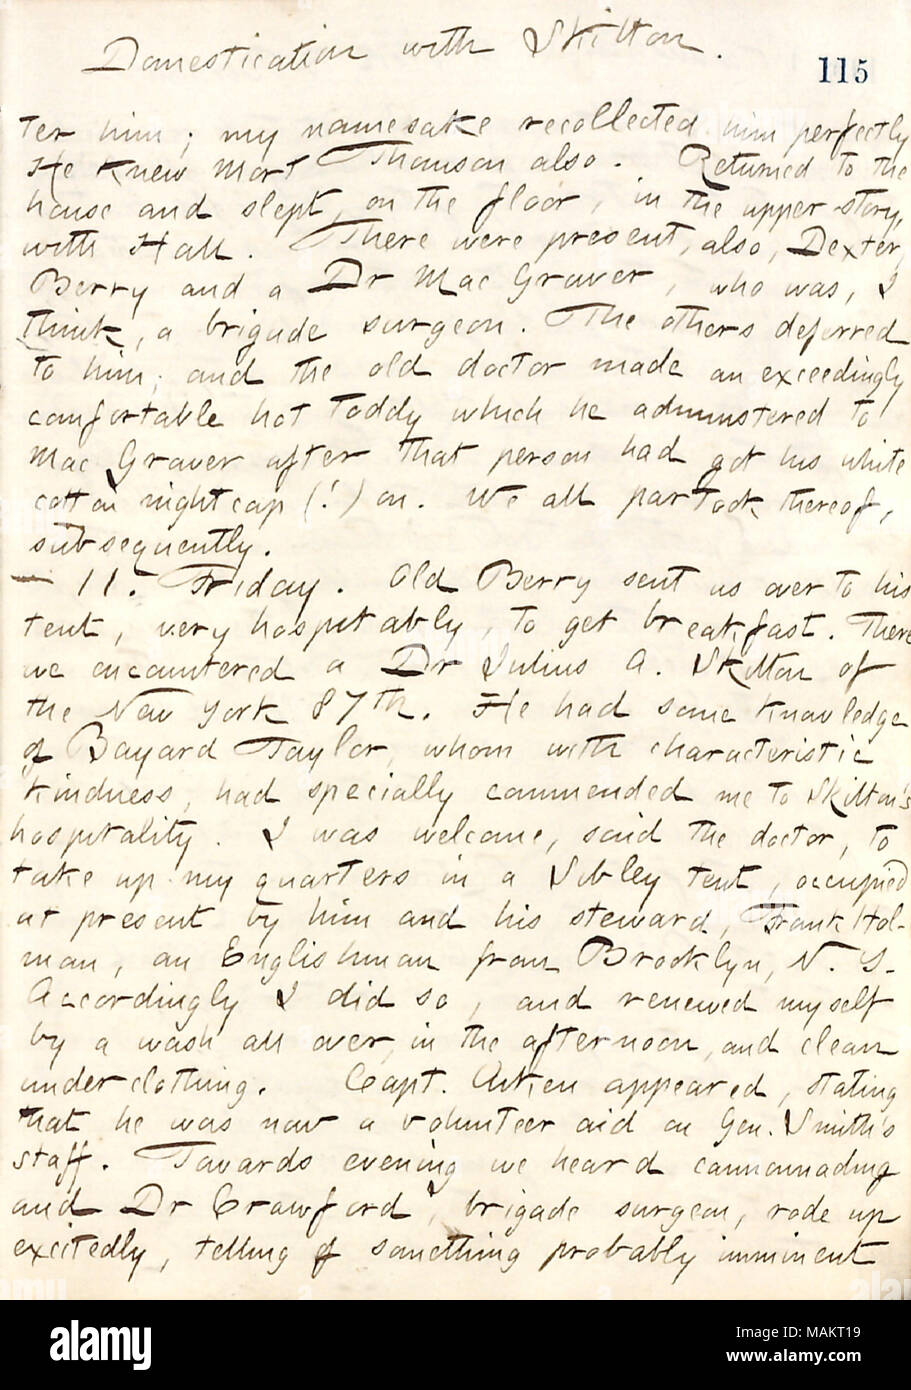 Domestication with Skilton.
115
ter him; my namesake recollected him perfectly
He knew Mort Thomson also. Returned to the
house and slept, on the floor, in the upper story,
with Hall. There were present, also, Dexter,
Berry and a Dr Mac Graver, who was, I
think, a brigade surgeon. The others deferred
to him; and the old doctor made an exceedingly
comfortable hot toddy which he administered to
Mac Graver after that person had got his white
cotton nightcap (!) on. We all partook thereof,
subsequently.
— 11. Friday. Old Berry sent us over to his
tent, very hospitably, to get breakfast. There
we encountered a Dr Julius A. Skilton of
the New York 87th. He had some knowledge
of Bayard Taylor, whom with characteristic
kindness, had specially commended me to Skilton's
hospitality. I was welcome, said the doctor, to
take up my quarters in a Sibley tent, occupied
at present by him and his steward, Frank Hol-
man, an Englishman from Brooklyn, N. Y.
Accordingly I did so, and renewed myself
by a wash all over, in the afternoon, and clean
underclothing. Capt. Aiken appeared, stating
that he was now a volunteer aid on Gen. Smith's
staff. Towards evening we heard cannonading
and Dr Crawford, brigade surgeon, rode up
excitedly, telling of something probably imminent
alamy
Image ID: MAKT19
www.alamy.com